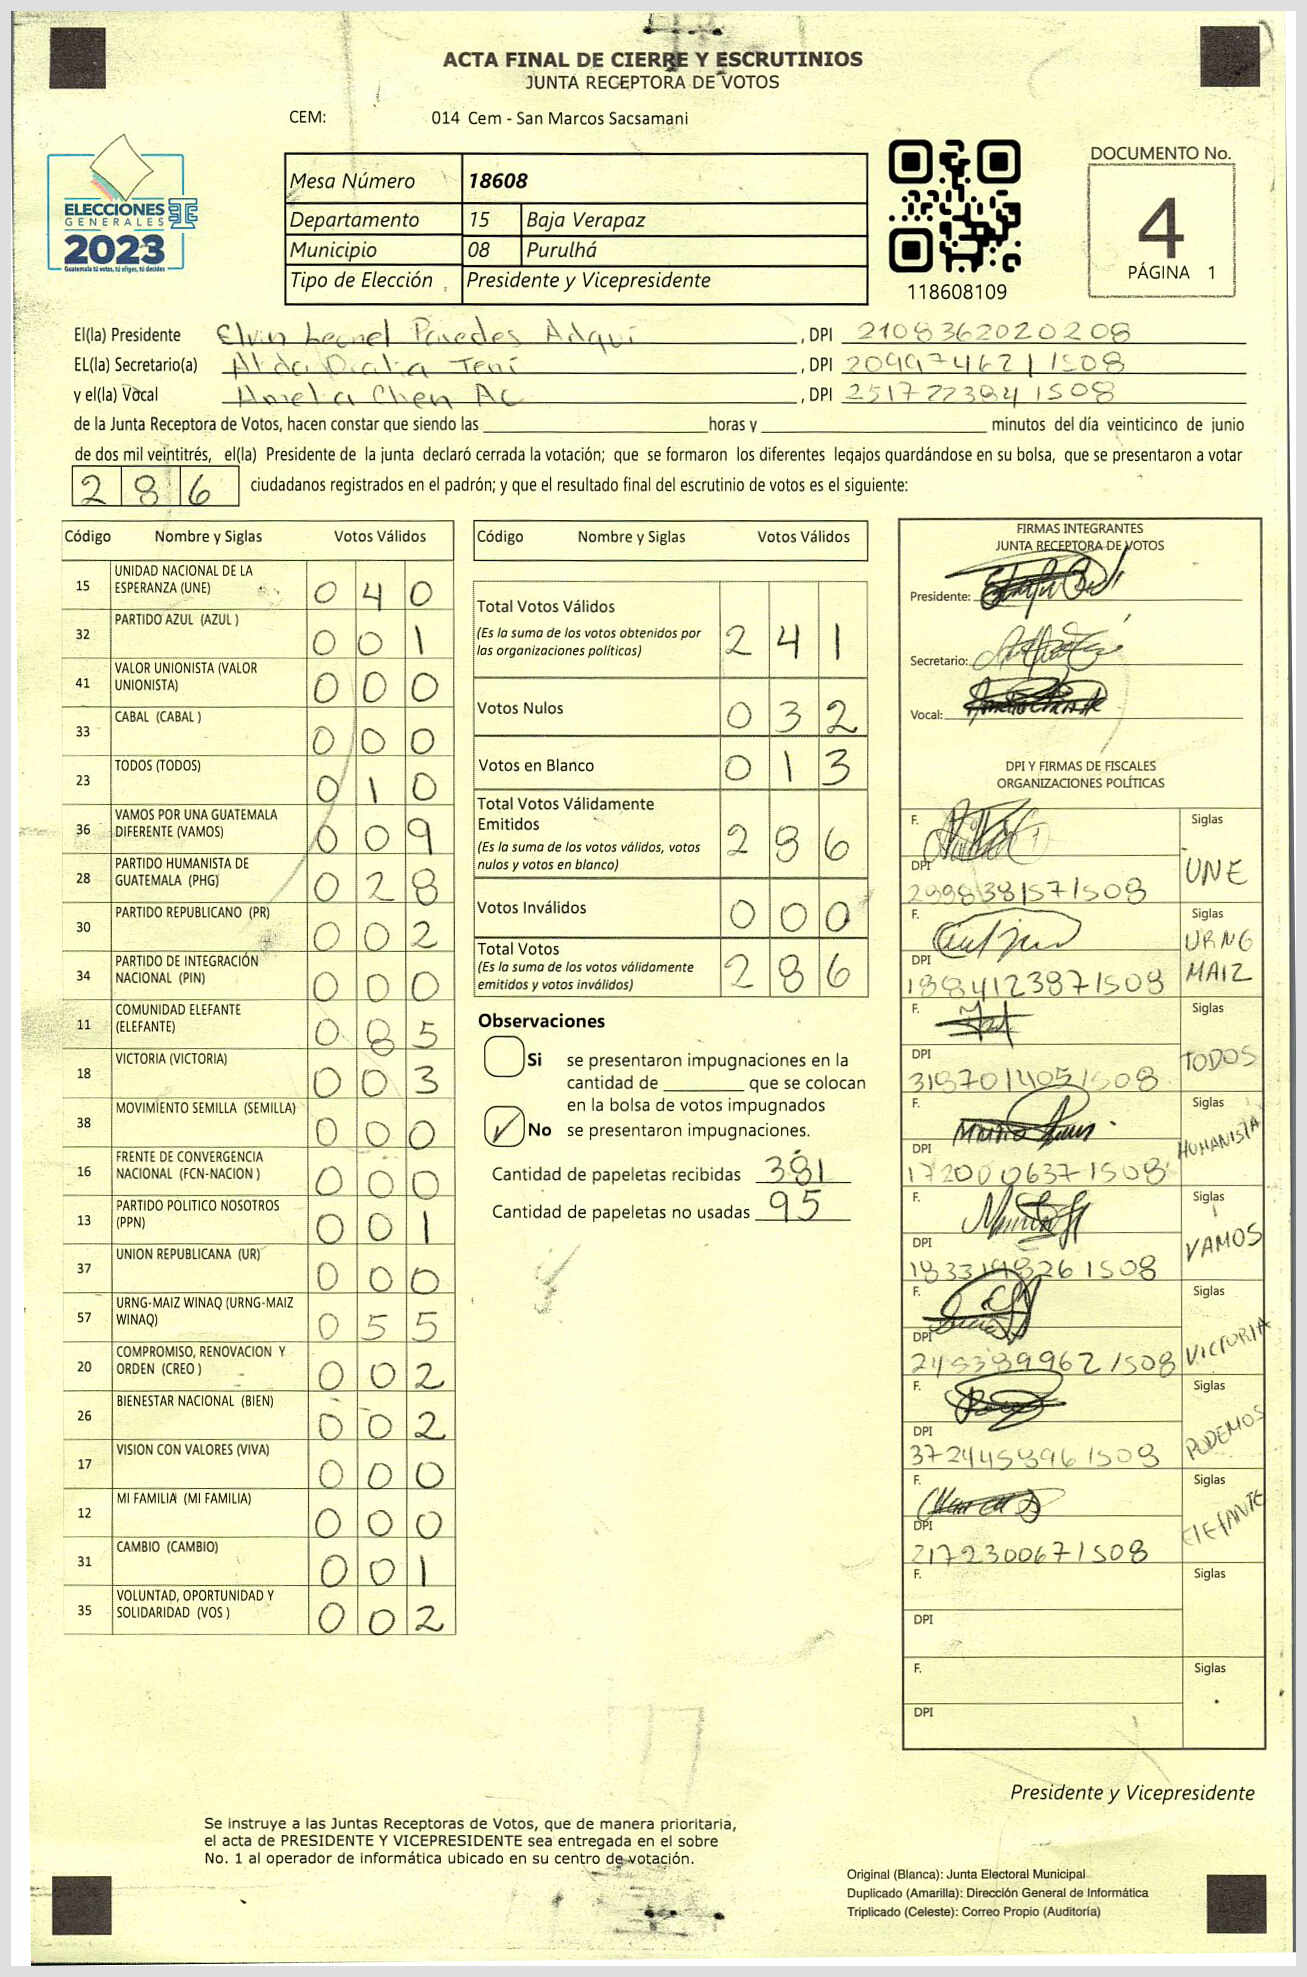 ACTA FINAL DE CIERRE Y ESCRUTINIOS
JUNTA RECEPTORA DE VOTOS
CEM: 014 Cem - San Marcos Sacsamani
ELECCIONES
GENERALES
2023
Guatemala tú votas, tú eliges, tú decides
Mesa Número 18608
Departamento 15 Baja Verapaz
Municipio 08 Purulhá
Tipo de Elección Presidente y Vicepresidente
118608109
DOCUMENTO No.
4
PÁGINA 1
El(la) Presidente Elvin Leonel Paredes , DPI 2108362020208
EL(la) Secretario(a) , DPI 2099746211508
y el(la) Vocal Amelia Chen Ac , DPI 2517223841508
de la Junta Receptora de Votos, hacen constar que siendo las horas y minutos del día veinticinco de junio
de dos mil veintitrés, el(la) Presidente de la junta declaró cerrada la votación; que se formaron los diferentes legajos guardándose en su bolsa, que se presentaron a votar
286 ciudadanos registrados en el padrón; y que el resultado final del escrutinio de votos es el siguiente:
Código Nombre y Siglas Votos Válidos
15 UNIDAD NACIONAL DE LA ESPERANZA (UNE) 040
32 PARTIDO AZUL (AZUL ) 001
41 VALOR UNIONISTA (VALOR UNIONISTA) 000
33 CABAL (CABAL ) 000
23 TODOS (TODOS) 010
36 VAMOS POR UNA GUATEMALA DIFERENTE (VAMOS) 009
28 PARTIDO HUMANISTA DE GUATEMALA (PHG) 028
30 PARTIDO REPUBLICANO (PR) 002
34 PARTIDO DE INTEGRACIÓN NACIONAL (PIN) 000
11 COMUNIDAD ELEFANTE (ELEFANTE) 085
18 VICTORIA (VICTORIA) 003
38 MOVIMIENTO SEMILLA (SEMILLA) 000
16 FRENTE DE CONVERGENCIA NACIONAL (FCN-NACION ) 000
13 PARTIDO POLITICO NOSOTROS (PPN) 001
37 UNION REPUBLICANA (UR) 000
57 URNG-MAIZ WINAQ (URNG-MAIZ WINAQ) 055
20 COMPROMISO, RENOVACION Y ORDEN (CREO ) 002
26 BIENESTAR NACIONAL (BIEN) 002
17 VISION CON VALORES (VIVA) 000
12 MI FAMILIA (MI FAMILIA) 000
31 CAMBIO (CAMBIO) 001
35 VOLUNTAD, OPORTUNIDAD Y SOLIDARIDAD (VOS ) 002
Código Nombre y Siglas Votos Válidos
Total Votos Válidos 241
(Es la suma de los votos obtenidos por
las organizaciones políticas)
Votos Nulos 032
Votos en Blanco 013
Total Votos Válidamente
Emitidos 286
(Es la suma de los votos válidos, votos
nulos y votos en blanco)
Votos Inválidos 000
Total Votos 286
(Es la suma de los votos válidamente
emitidos y votos inválidos)
Observaciones
Si se presentaron impugnaciones en la
cantidad de que se colocan
en la bolsa de votos impugnados
No se presentaron impugnaciones.
Cantidad de papeletas recibidas 381
Cantidad de papeletas no usadas 95
FIRMAS INTEGRANTES
JUNTA RECEPTORA DE VOTOS
Presidente:
Secretario:
Vocal:
DPI Y FIRMAS DE FISCALES
ORGANIZACIONES POLÍTICAS
F. Siglas
UNE
DPI 2998381571508
F. Siglas
URNG
MAIZ
DPI 1884123871508
F. Siglas
TODOS
DPI 3187014051508
F. Siglas
HUMANISTA
DPI 1720006371508
F. Siglas
VAMOS
DPI 1833198261508
F. Siglas
VICTORIA
DPI 2453899621508
F. Siglas
PODEMOS
DPI 3724458961508
F. Siglas
ElEfANTE
DPI 2172300671508
F. Siglas
DPI
F. Siglas
DPI
Presidente y Vicepresidente
Se instruye a las Juntas Receptoras de Votos, que de manera prioritaria,
el acta de PRESIDENTE Y VICEPRESIDENTE sea entregada en el sobre
No. 1 al operador de informática ubicado en su centro de votación.
Original (Blanca): Junta Electoral Municipal
Duplicado (Amarilla): Dirección General de Informática
Triplicado (Celeste): Correo Propio (Auditoría)